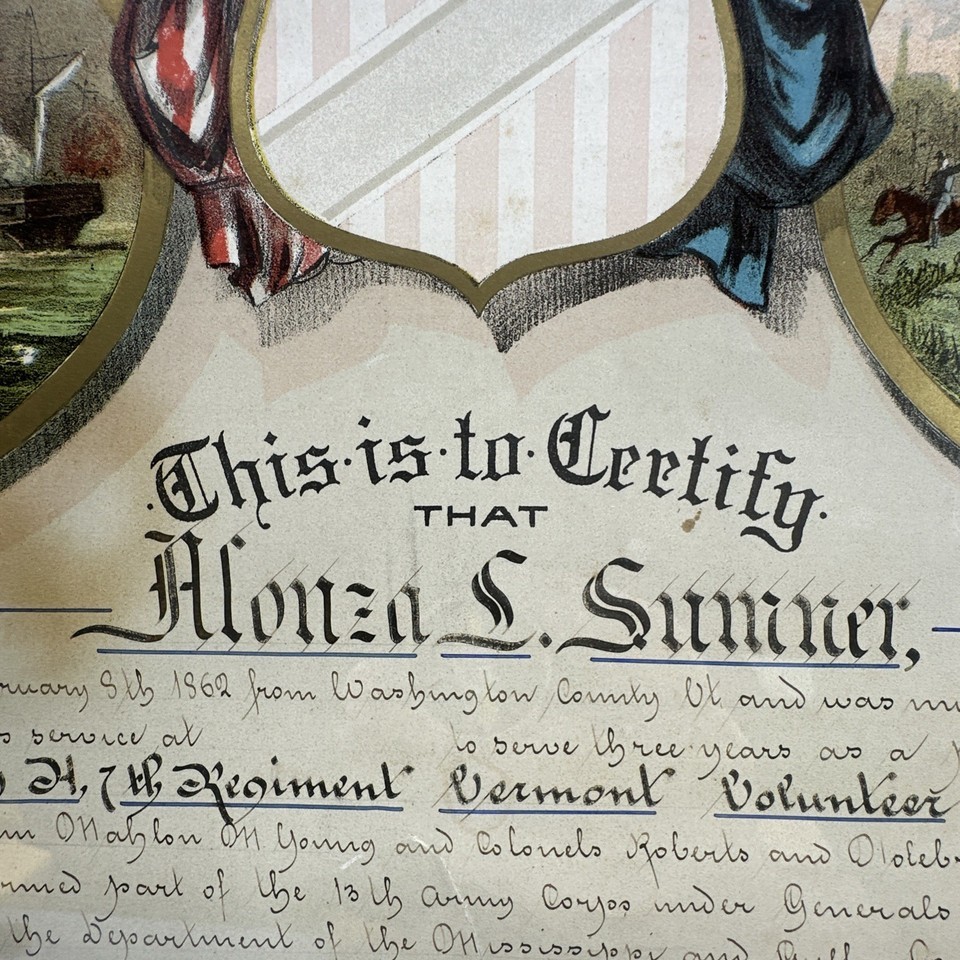 ·This·is·to·Certify·
THAT
Alonza L. Sumner,
ruary 8th 1862 from Washington County Vt and was mu
s service at to serve three years as a
H, 7th Regiment Vermont Volunteer
Mahlon M Young and Colonels Roberts and Holcb
rmed part of the 13th Army Corps under Generals
the Department of the Mississippi and Gulf